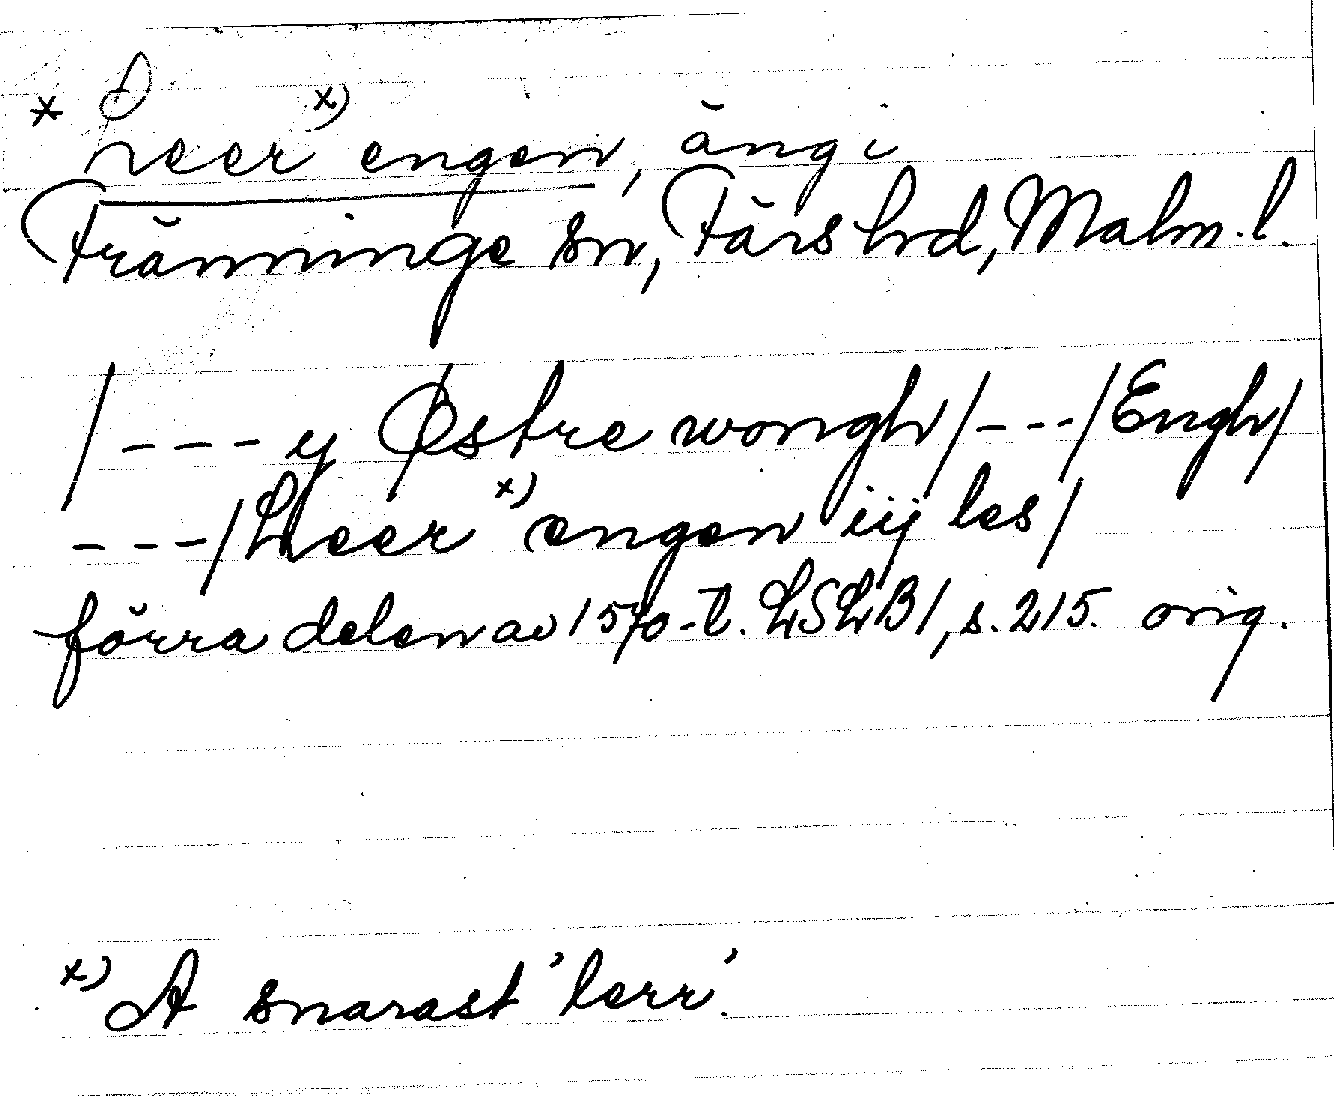 * Leer x) engen, äng i
Fränninge sn, Färs hd, Malm. l.
/---y Østre wongh/---/Engh/
---/Leer x) engen iij les/
förra delen av 1570-t. LSLB1, s. 215. orig.
x) A snarast 'lerr'.